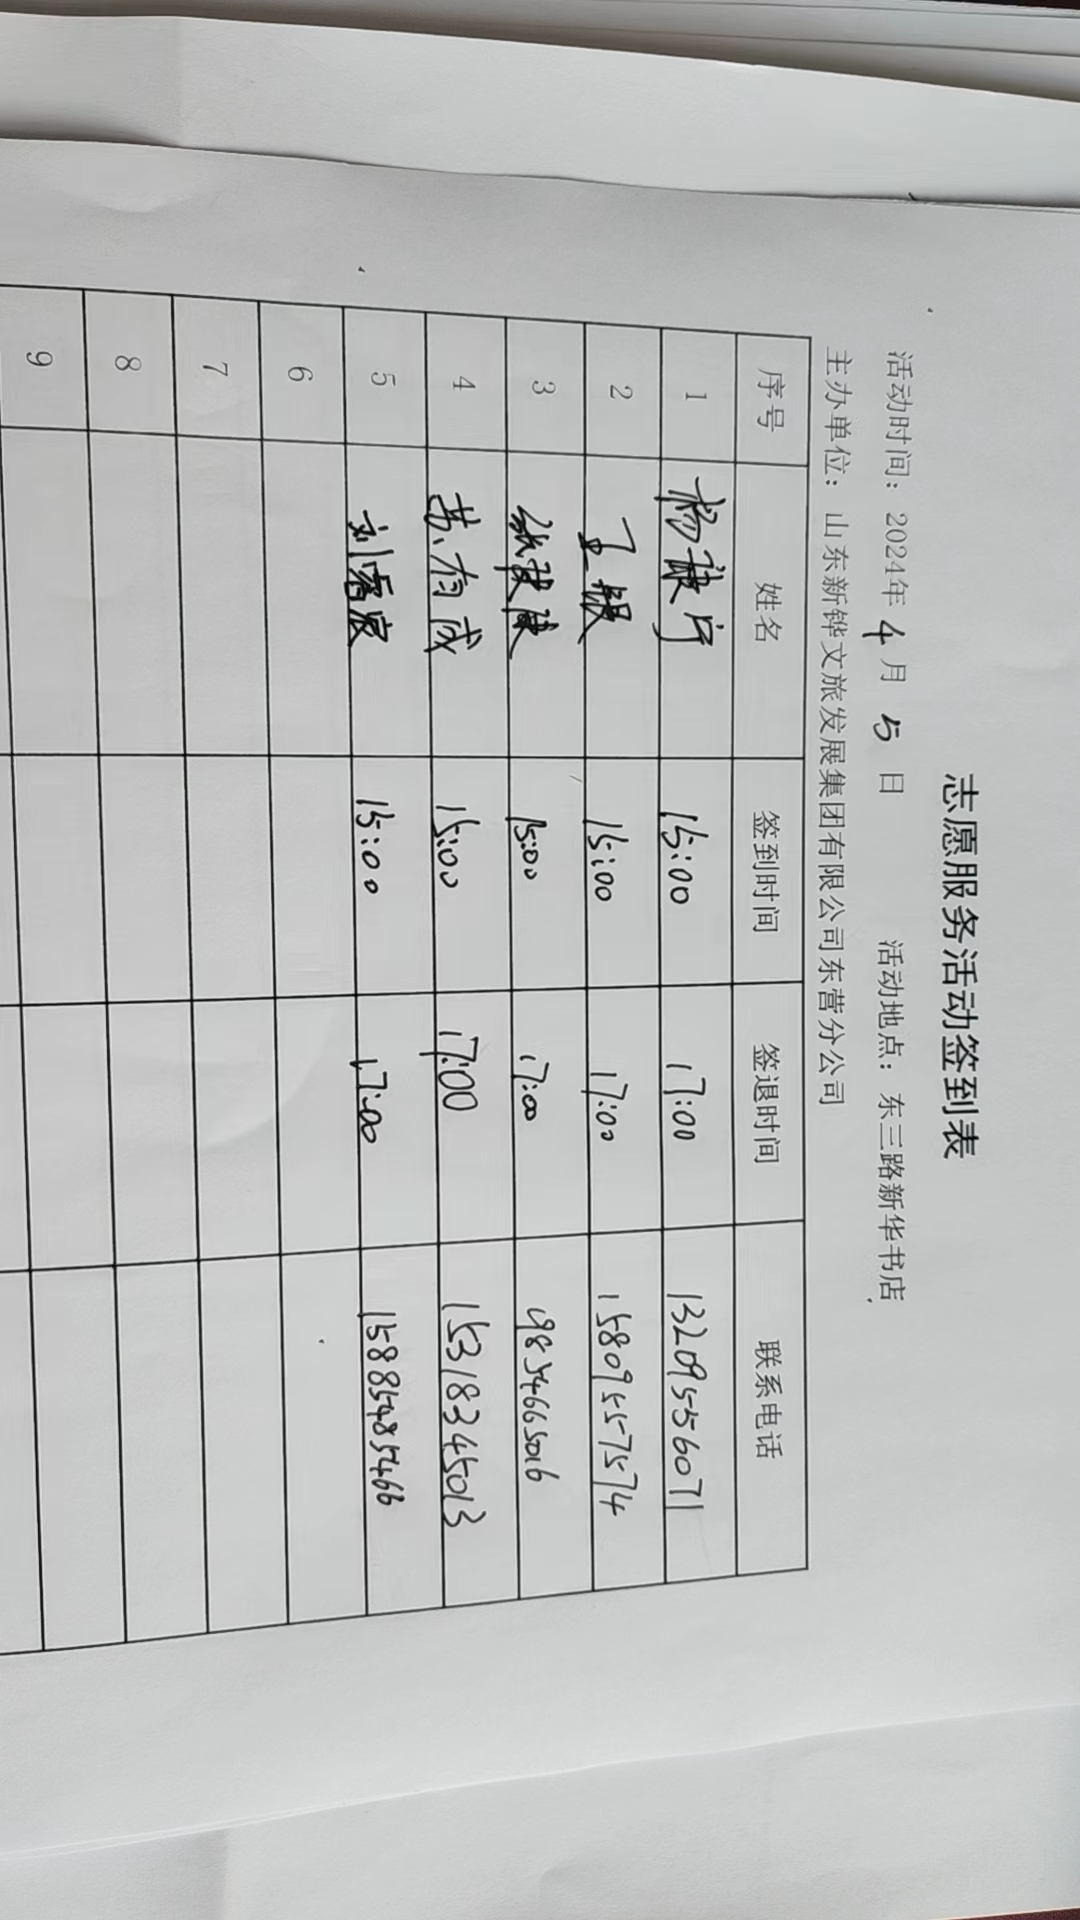 志愿服务活动签到表
活动时间：2024年 4 月 5 日 活动地点：东三路新华书店
主办单位：山东新铧文旅发展集团有限公司东营分公司
序号 姓名 签到时间 签退时间 联系电话
1 杨 15:00 17:00 13209556071
2 王 15:00 17:00 15809557574
3 张 15:00 17:00 19854665016
4 苏有成 15:00 17:00 15318345013
5 刘睿宸 15:00 17:00 15885485466
6
7
8
9